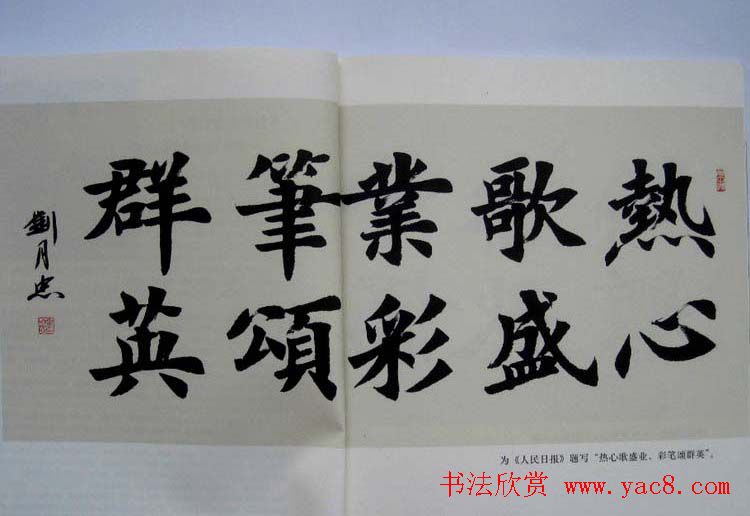 熱心
歌盛
業彩
筆頌
群英
劉月忠
为《人民日报》题写“热心歌盛业、彩笔颂群英”。
书法欣赏 www.yac8.com